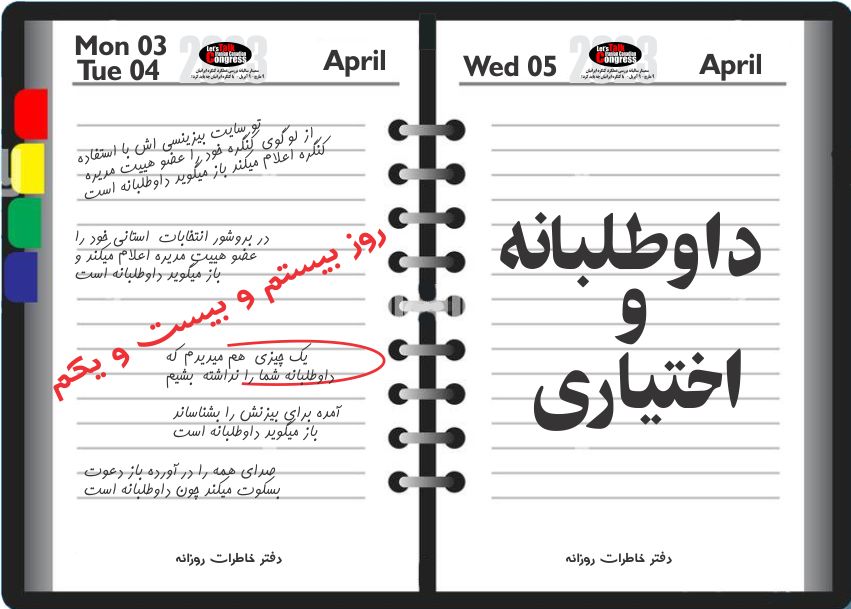 Mon 03
Tue 04
April
2023
Let's Talk
Iranian Canadian
Congress
تو سایت بیزینسی اش با استفاده
از لوگوی کنگره خود را عضو هییت مدیره
کنگره اعلام میکند باز میگوید داوطلبانه است
در بروشور انتخابات استانی خود را
عضو هییت مدیره اعلام میکند و
باز میگوید داوطلبانه است
روز بیستم و بیست و یکم
یک چیزی هم میدیدم که
داوطلبانه شما را نداشته بشیم
آمده برای بیزنش را بشناساند
باز میگوید داوطلبانه است
صدای همه را در آورده باز دعوت
بسکوت میکند چون داوطلبانه است
دفتر خاطرات روزانه
Wed 05
April
2023
Let's Talk
Iranian Canadian
Congress
داوطلبانه
و
اختیاری
دفتر خاطرات روزانه